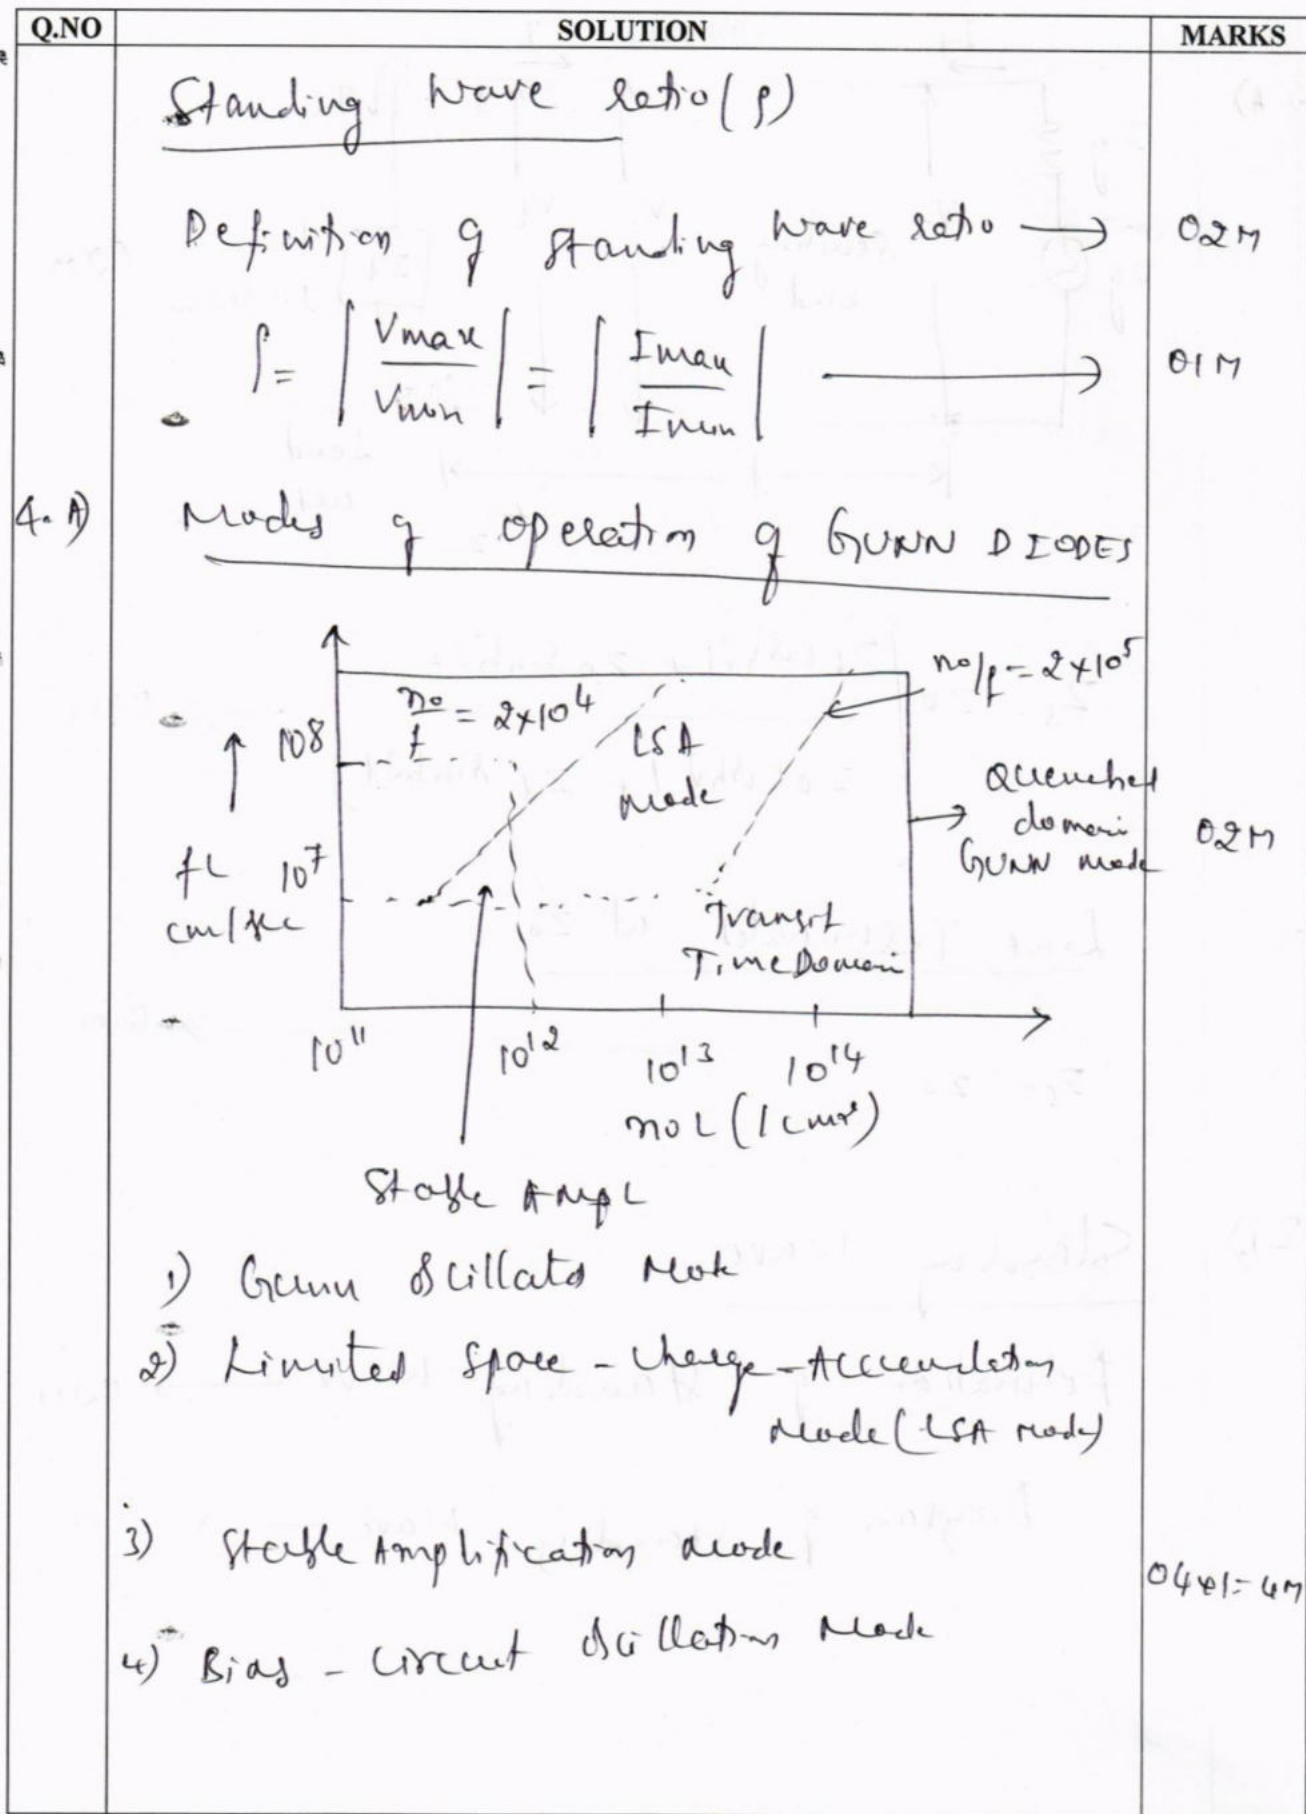 Q.NO SOLUTION MARKS
Standing wave ratio (ρ)
Definition of standing wave ratio → 02M
ρ = | Vmax / Vmin | = | Imax / Imin | → 01M
4. A) Modes of operation of GUNN DIODES
no/f = 2×10^4
no/f = 2×10^5
10^8
LSA
mode
Quenched
domain
GUNN mode
02M
fL
cm/sec
10^7
Transit
Time Domain
10^11 10^12 10^13 10^14
noL (/cm²)
Stable Ampl
1) Gunn oscillator Mode
2) Limited space-charge-Accumulation
Mode (LSA mode)
3) Stable Amplification Mode
04×1=4M
4) Bias-circuit oscillation Mode